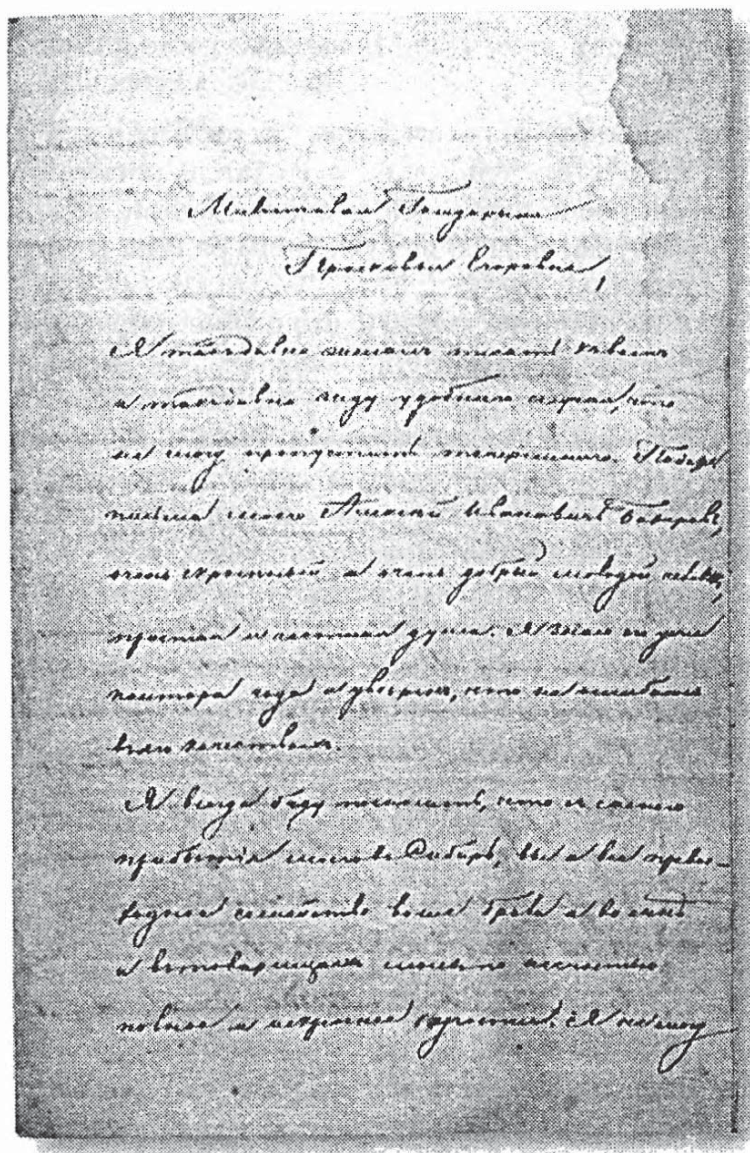 Милостивая Государыня
Прасковья Егоровна,
Я такъ давно желаю писать къ вамъ
и такъ давно жду удобнаго случая, что
не могу пропустить теперешняго. Податель
письма моего Алексѣй Ивановичъ Бахиревъ,
очень скромный и очень добрый молодой человѣкъ,
простая и честная душа. Я знаю его уже
полтора года и увѣренъ, что не ошибаюсь
въ его качествахъ.
Я всегда буду помнить, что съ самаго
прибытія моего въ Сибирь, вы и все превос-
ходное семейство ваше брали и во мнѣ
и въ товарищахъ моихъ по несчастью
полное и искреннее участіе. Я не могу